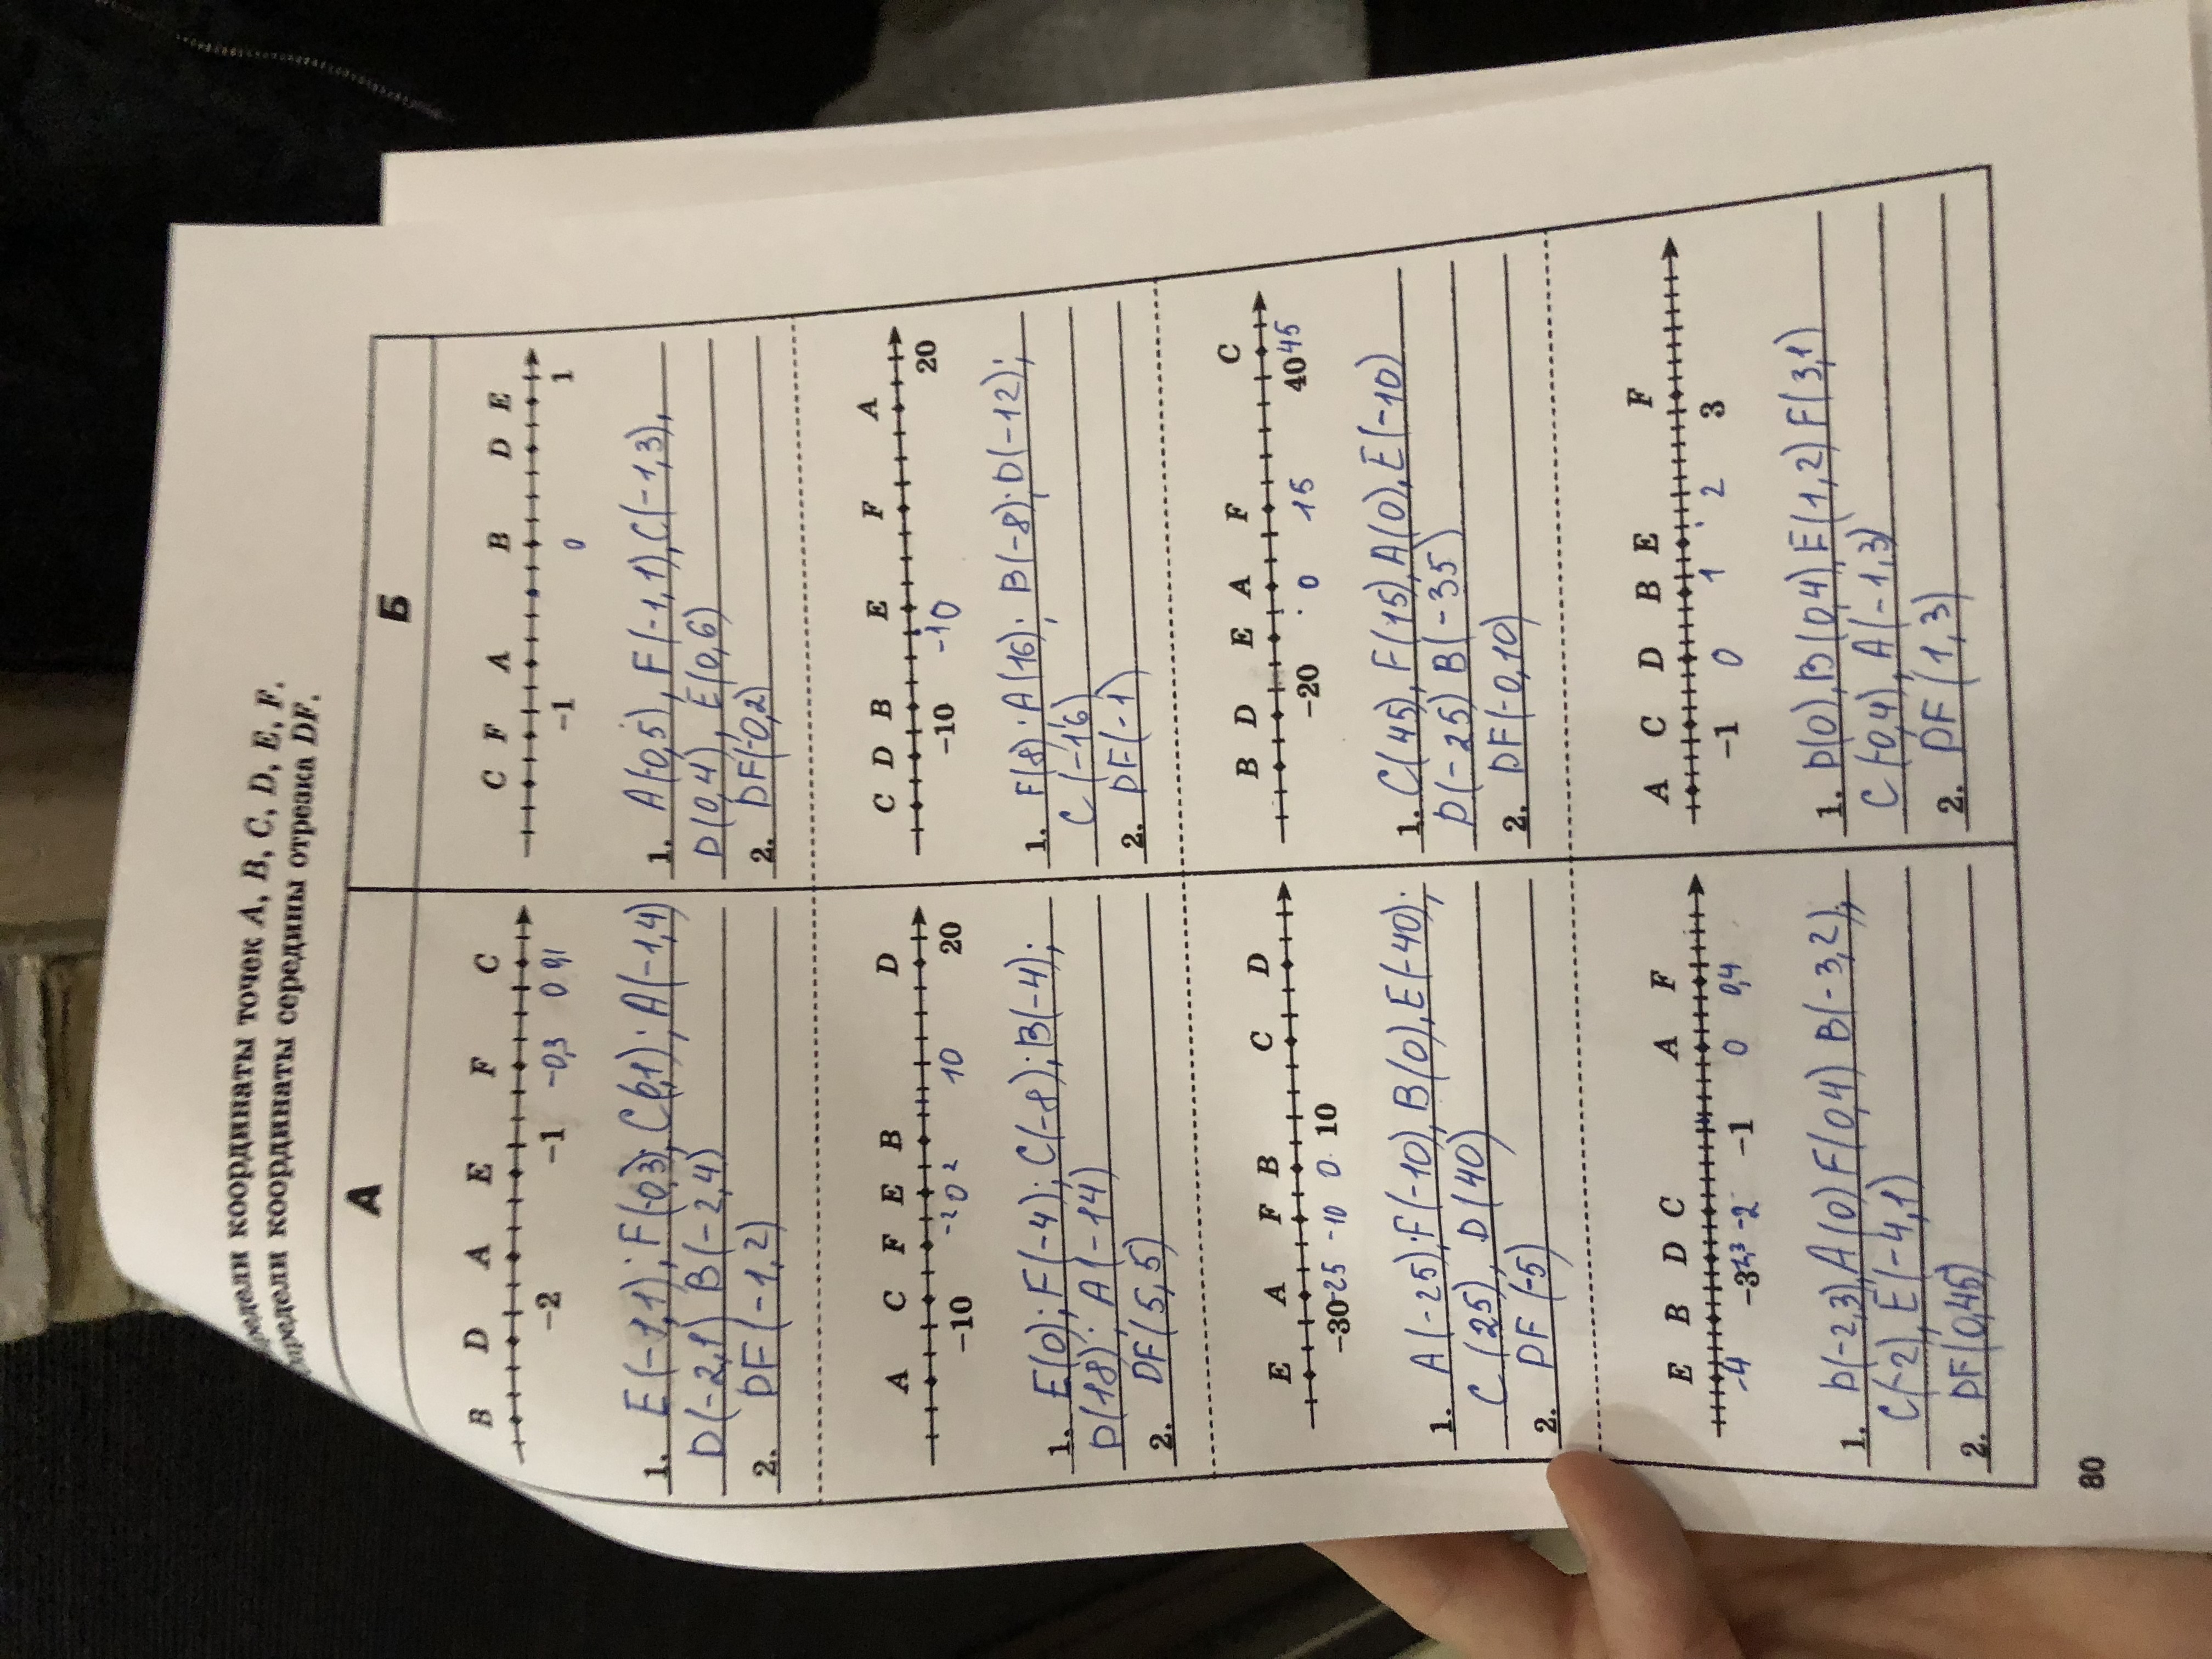 определи координаты точек A, B, C, D, E, F.
определи координаты середины отрезка DF.
А
B D A E F C
-2 -1 -0,3 0 0,1
1. E(-1,1); F(-0,3); C(0,1); A(-1,4)
D(-2,1) B(-2,4)
2. DF(-1,2)
A C F E B D
-10 -2 0 2 10 20
1. E(0); F(-4); C(-8); B(-4);
D(18); A(-14)
2. DF(5,5)
E A F B C D
-30 -25 -10 0 10
1. A(-25); F(-10), B(0), E(-40);
C(25), D(40)
2. DF(-5)
E B D C A F
-4 -3 -2,3 -2 -1 0 0,4
1. D(-2,3), A(0) F(0,4) B(-3,2),
C(-2), E(-4,1)
2. DF(0,45)
Б
C F A B D E
-1 0 1
1. A(-0,5), F(-1,1), C(-1,3),
D(0,4), E(0,6)
2. DF(-0,2)
C D B E F A
-10 -10 20
1. F(8); A(16); B(-8); D(-12);
C(-16)
2. DF(-1)
B D E A F C
-20 0 15 40 45
1. C(45), F(15), A(0), E(-10)
D(-25) B(-35)
2. DF(-0,10)
A C D B E F
-1 0 1 2 3
1. D(0), B(0,4) E(1,2) F(3,1)
C(-0,4), A(-1,3)
2. DF(1,3)
80